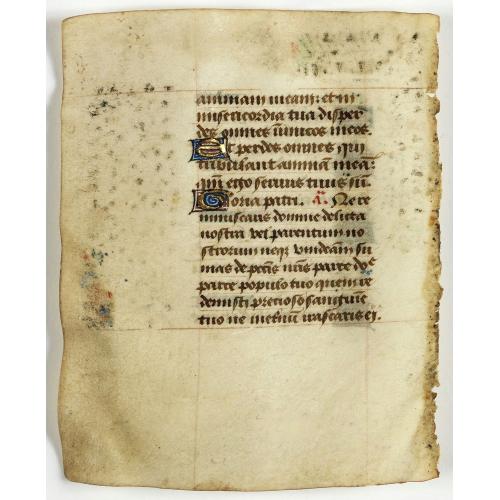 animam meam: et in
misericordia tua disper
des omnes inimicos meos.
Et perdes omnes qui
tribulant animā meā:
qm̄ ego servus tuus sū.
Gloria patri. Añ. Ne re
miniscaris domine delicta
nostra vel parentum no
strorum neqꝫ vindictam su
mas de pctīs nr̄is parce dn̄e
parce populo tuo quem re
demisti precioso sanguine
tuo ne in eternū irascaris ei.